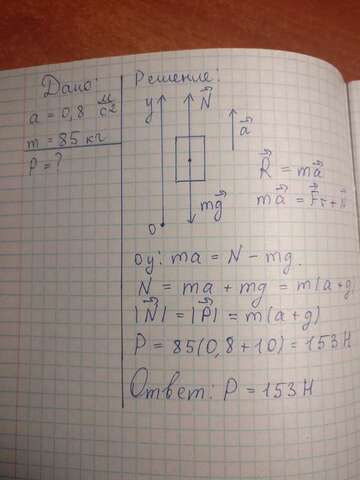 Дано:
a = 0,8 м/с2
m = 85 кг
P = ?
Решение:
y
N
a
mg
0
R = ma
ma = Fт + N
oy: ma = N - mg.
N = ma + mg = m(a+g)
|N| = |P| = m(a+g)
P = 85(0,8 + 10) = 153 H
Ответ: P = 153 H